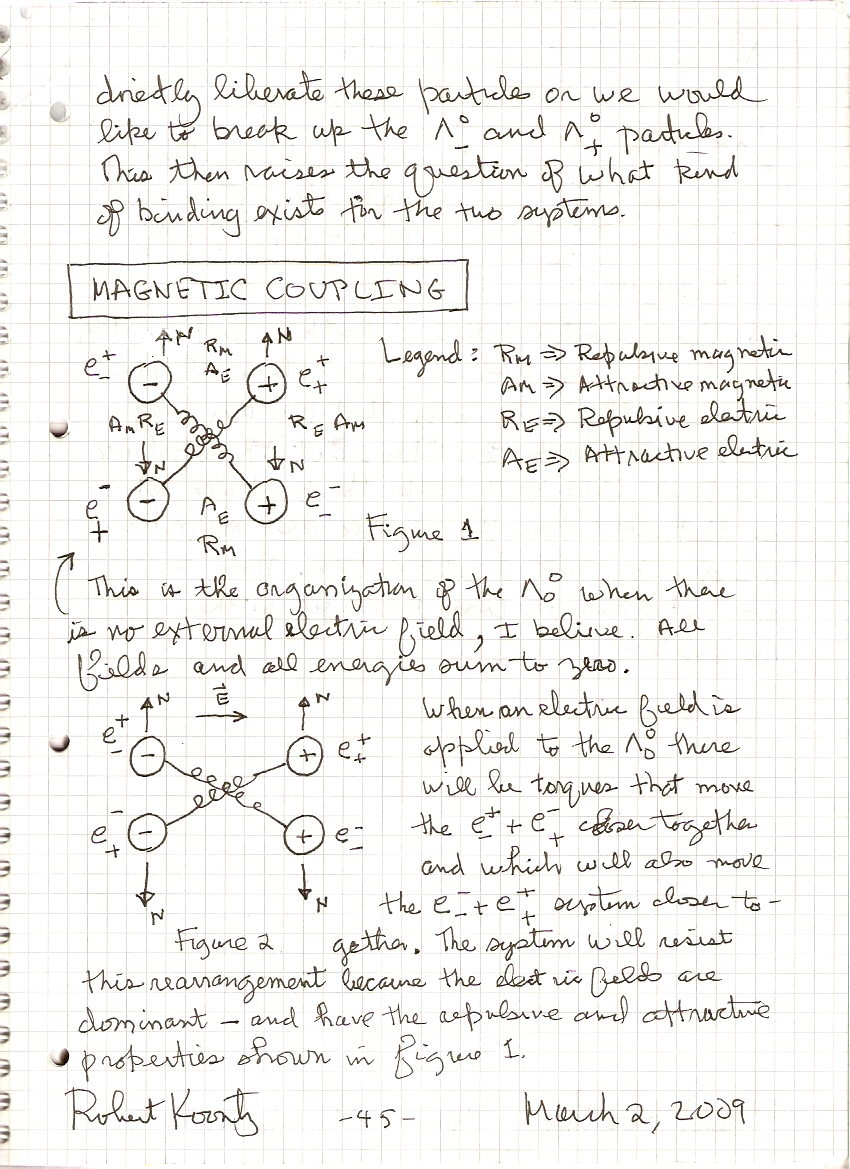 directly liberate these particles or we would
like to break up the Λ⁰₋ and Λ⁰₊ particles.
This then raises the question of what kind
of binding exists for the two systems.
MAGNETIC COUPLING
N R_M N
e⁺₋ − A_E + e⁺₊
A_M R_E R_E A_M
N N
e⁻₊ − A_E + e⁻₋
R_M
Legend: R_M ⇒ Repulsive magnetic
A_M ⇒ Attractive magnetic
R_E ⇒ Repulsive electric
A_E ⇒ Attractive electric
Figure 1
This is the organization of the Λ⁰₀ when there
is no external electric field, I believe. All
fields and all energies sum to zero.
N E⃗ N
e⁺₋ − + e⁺₊
e⁻₊ − + e⁻₋
N N
Figure 2
When an electric field is
applied to the Λ⁰₀ there
will be torques that move
the e⁺₋ + e⁻₊ closer together
and which will also move
the e⁻₋ + e⁺₊ system closer to-
gether. The system will resist
this rearrangement because the electric fields are
dominant – and have the repulsive and attractive
properties shown in figure 1.
Robert Koontz -45- March 2, 2009